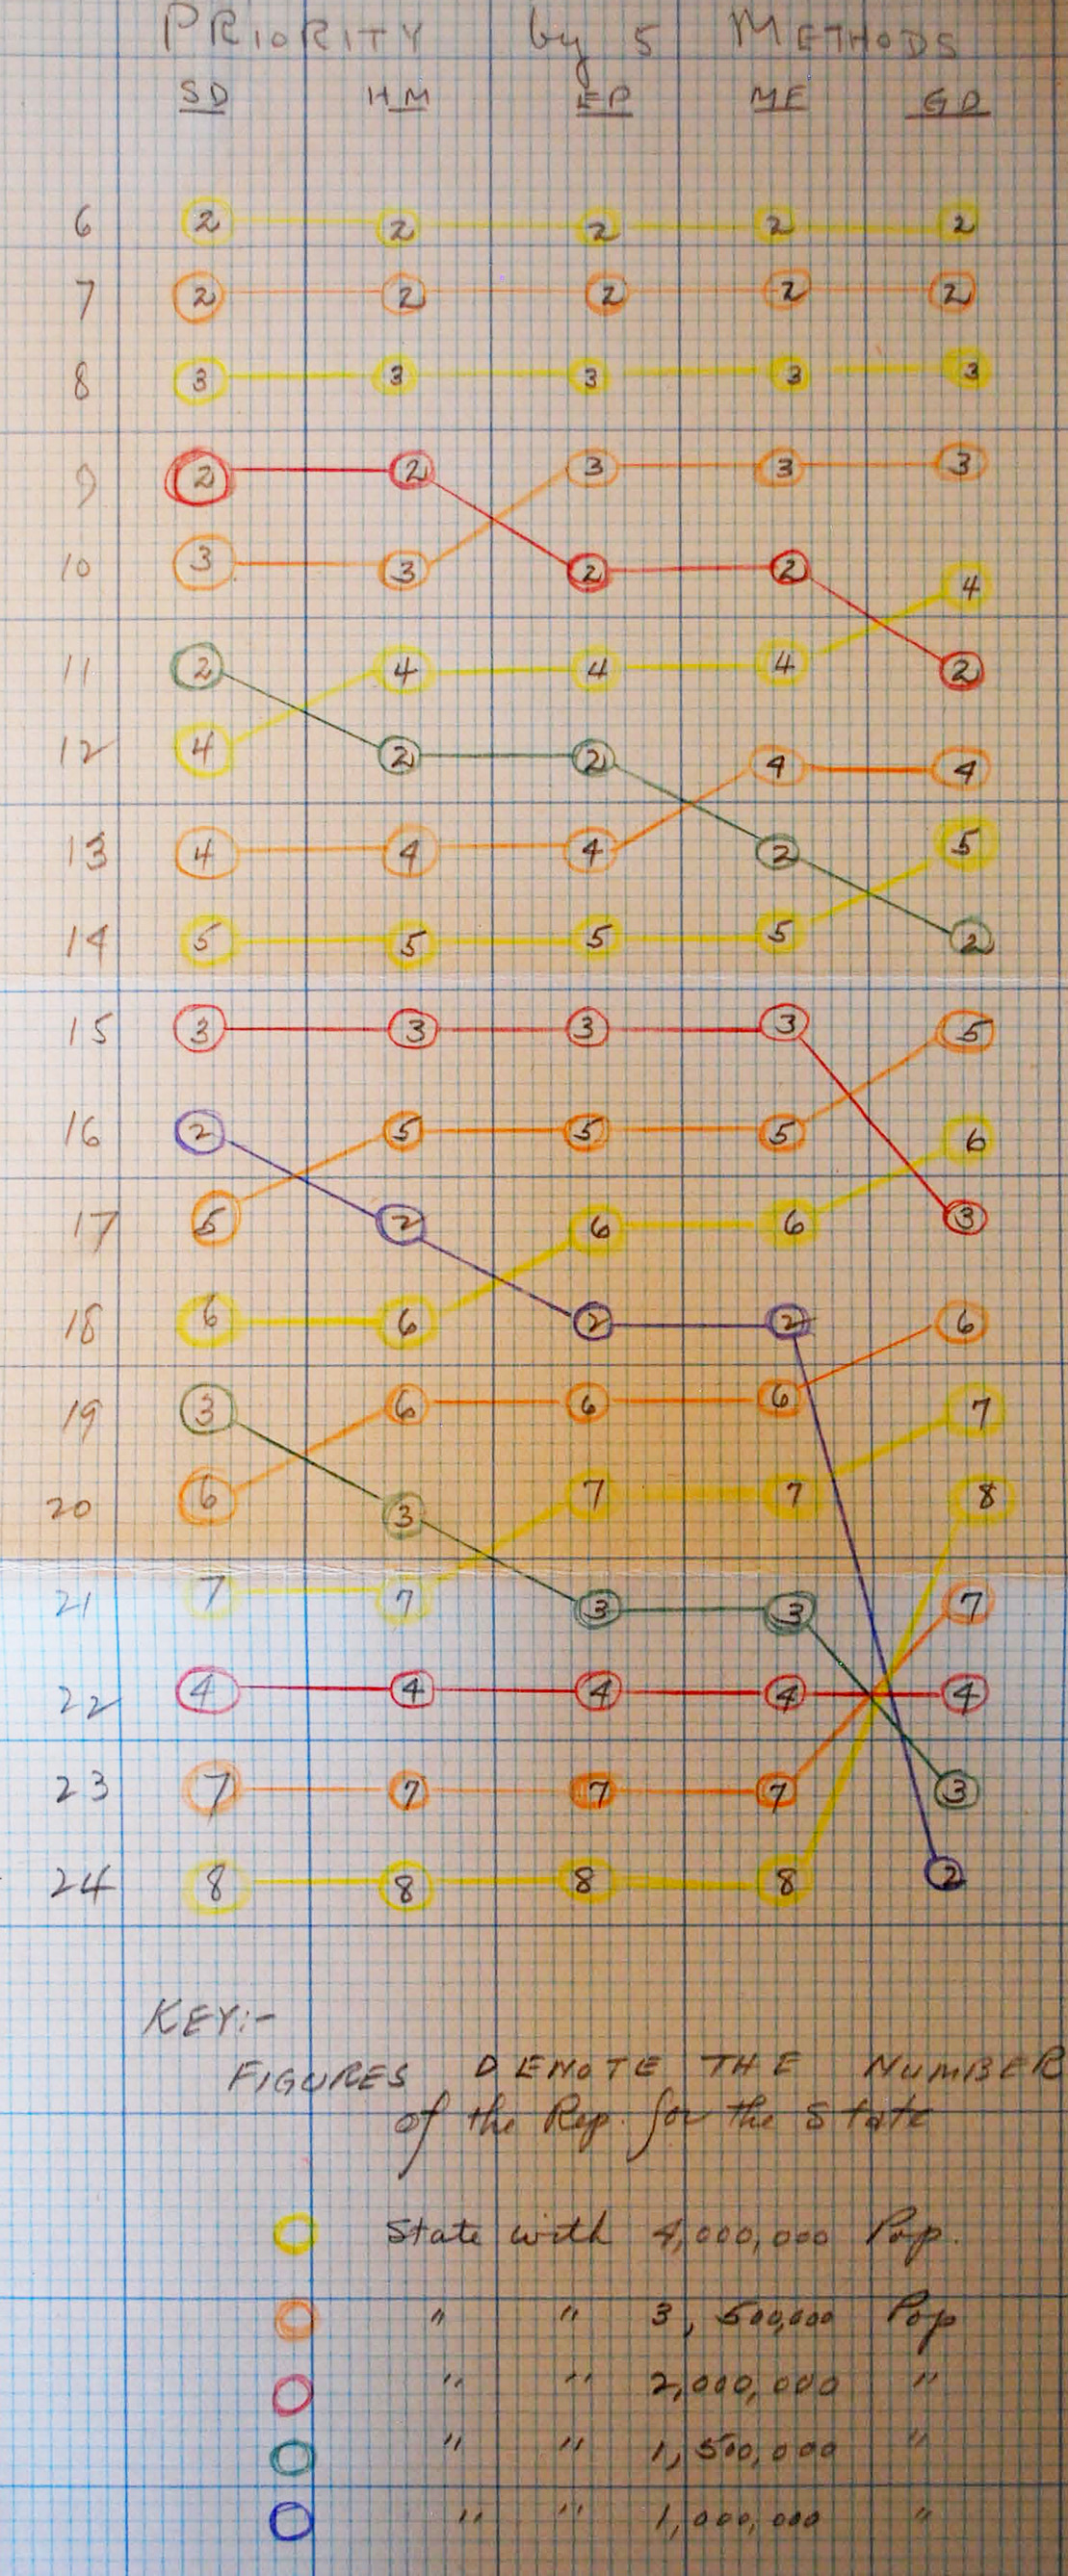 PRIORITY by 5 METHODS
SD HM EP MF GD
6 2 2 2 2 2
7 2 2 2 2 2
8 3 3 3 3 3
9 2 2 3 3 3
10 3 3 2 2 4
11 2 4 4 4 2
12 4 2 2 4 4
13 4 4 4 2 5
14 5 5 5 5 2
15 3 3 3 3 5
16 2 5 5 5 6
17 5 2 6 6 3
18 6 6 2 2 6
19 3 6 6 6 7
20 6 3 7 7 8
21 7 7 3 3 7
22 4 4 4 4 4
23 7 7 7 7 3
24 8 8 8 8 2
KEY:-
FIGURES DENOTE THE NUMBER
of the Rep. for the State
State with 4,000,000 Pop.
" " 3,500,000 Pop
" " 2,000,000 "
" " 1,500,000 "
" " 1,000,000 "